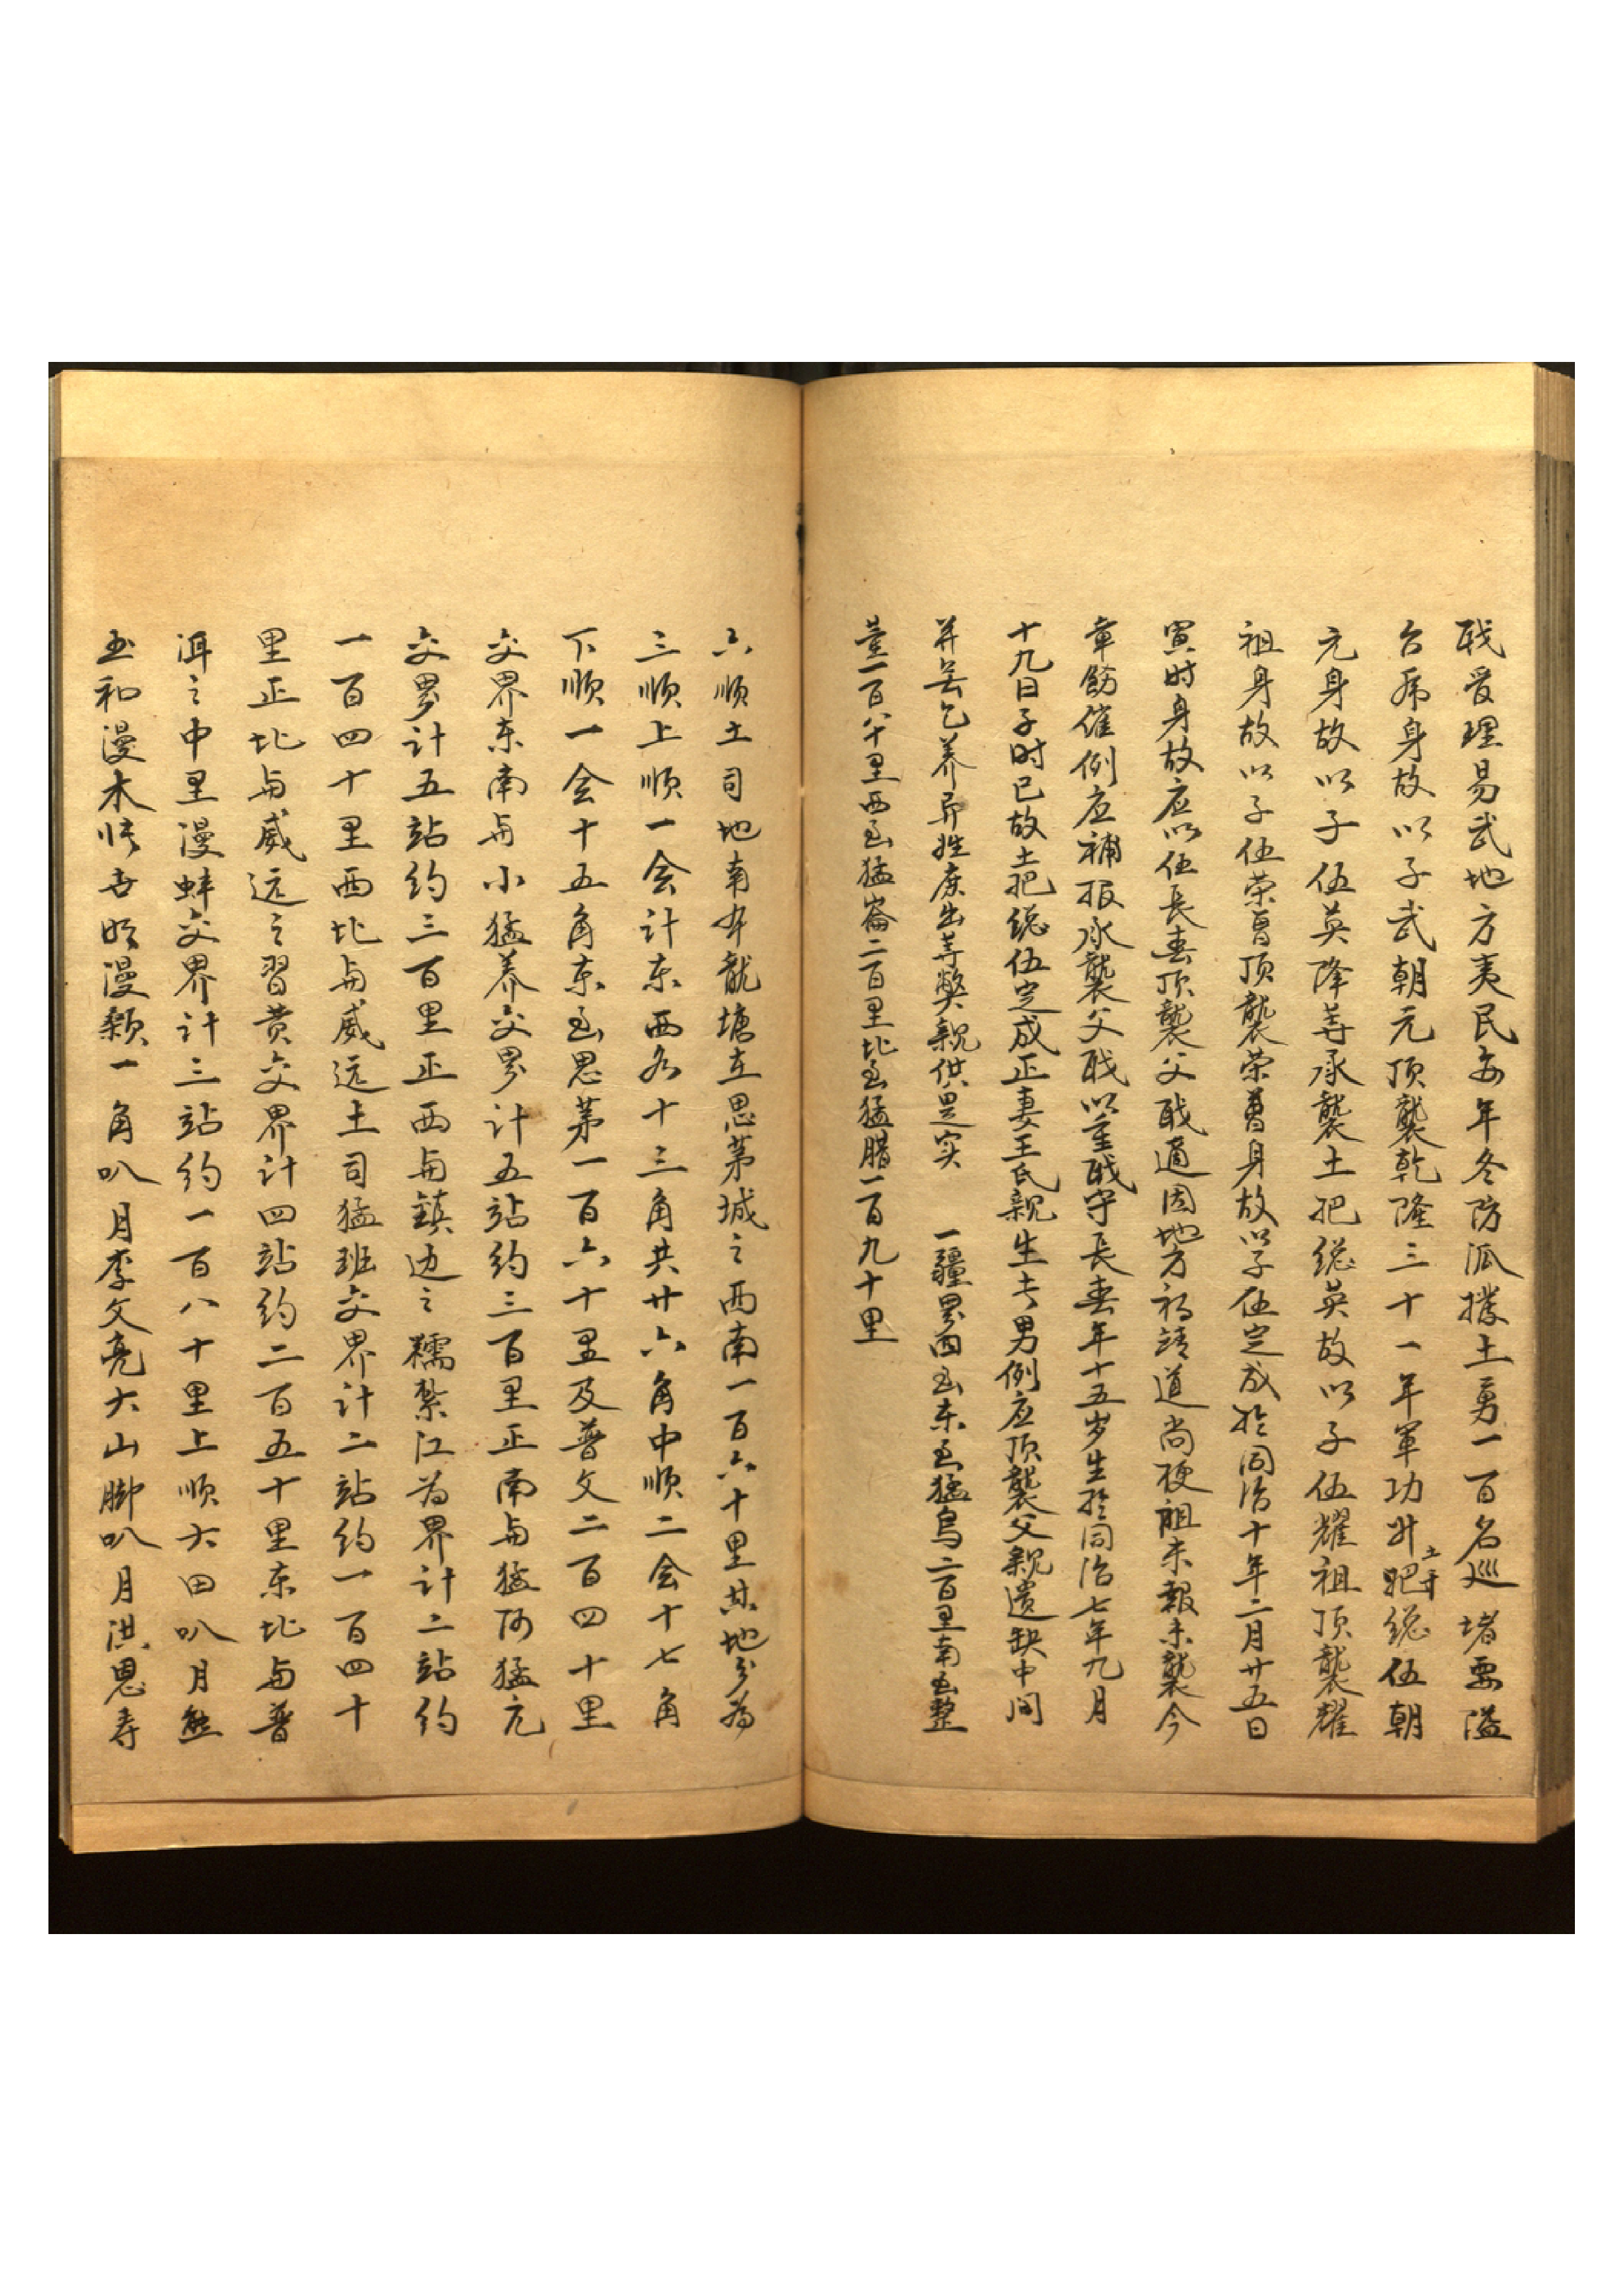 戝受理易武地方夷民每年冬防派撥土勇一百名巡堵要隘
台厈身故以子武朝元顶襲乾隆三十一年軍功升土千把総伍朝
元身故以子伍英降等承襲土把総英故以子伍耀祖顶襲耀
祖身故以子伍荣曾顶襲荣曾身故以子伍定成於同治十年二月廿五日
寅时身故应以伍長春顶襲父职適因地方初靖道尚梗阻未報未襲今
章飭催例应補报承襲父职以重职守長春年十五岁生於同治七年九月
十九日子时已故土把総伍定成正妻王氏親生長男例应顶襲父親遺缺中间
并無乞养异姓庶出等弊親供是实 一疆界四至东至猛烏二百里南至整
董一百八十里西至猛崙二百里北至猛腊一百九十里
六顺土司地南本龍塘在思茅城之西南一百六十里其地分為
三顺上顺一会计东西各十三角共廿六角中顺二会十七角
下顺一会十五角东至思茅一百六十里及普文二百四十里
交界东南与小猛养交界计五站约三百里正南与猛阿猛元
交界计五站约三百里正西与鎮边之糯紮江為界计二站约
一百四十里西北与威远土司猛班交界计二站约一百四十
里正北与威远之習黄交界计四站约二百五十里东北与普
洱之中里漫蚌交界计三站约一百八十里上顺大田叭月熊
玉和漫木 漫颖一角叭月李文亮大山脚叭月洪恩寿